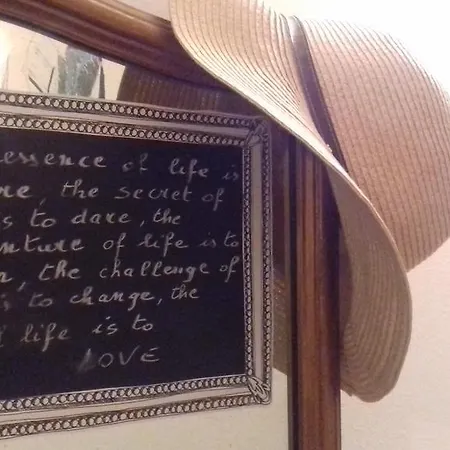 essence of life is
the secret of
is to dare, the
of life is to
the challenge of
is to change, the
life is to
LOVE